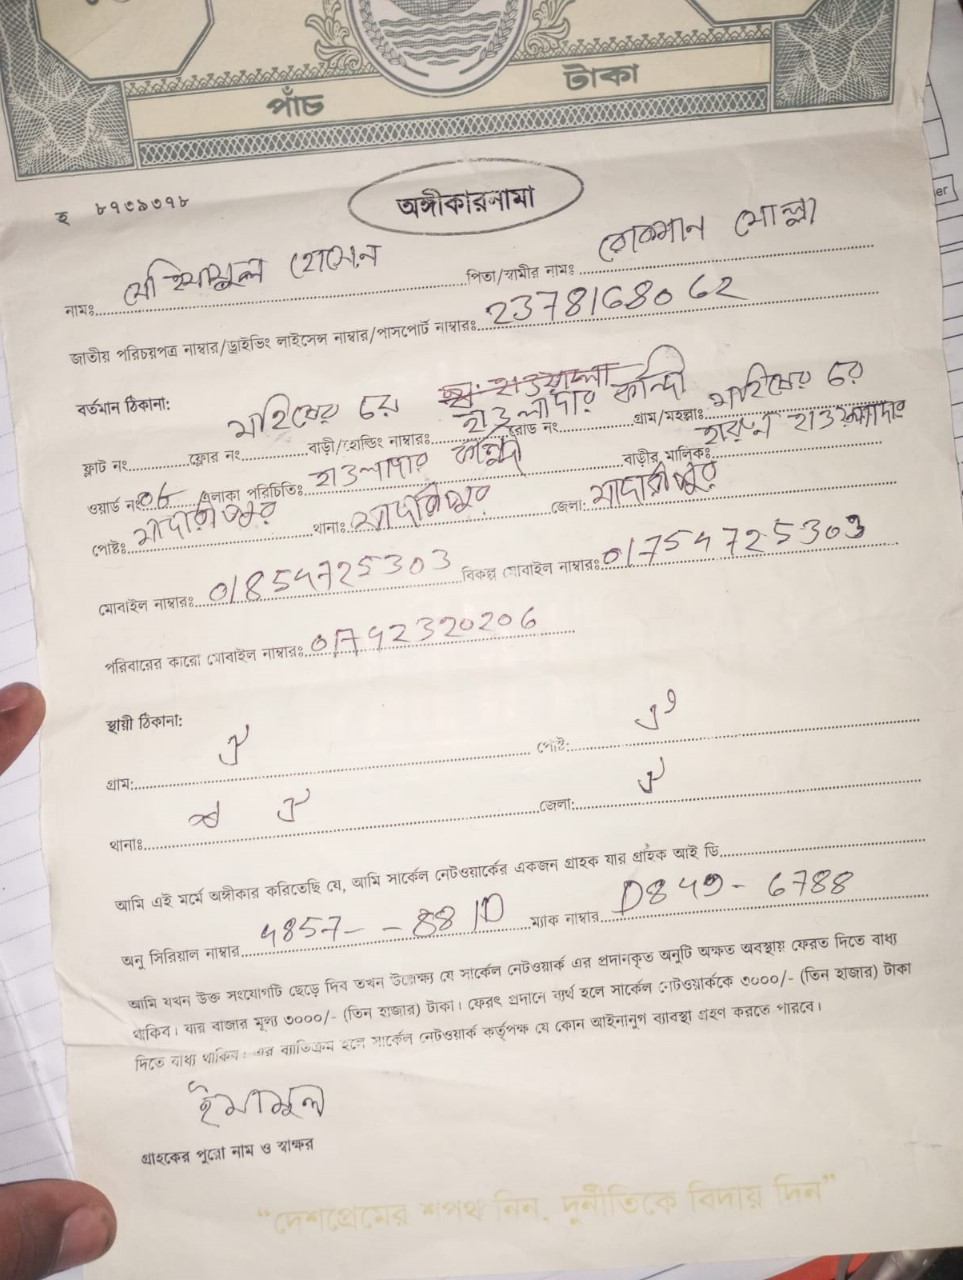 পাঁচ টাকা
হ ৮৭৩৯৩৭৮
অঙ্গীকারনামা
er
নামঃ মো ইমামুল হোসেন পিতা/স্বামীর নামঃ লোকমান মোল্লা
জাতীয় পরিচয়পত্র নাম্বার/ড্রাইভিং লাইসেন্স নাম্বার/পাসপোর্ট নাম্বারঃ 2378168062
বর্তমান ঠিকানা:
ফ্লাট নং ফ্লোর নং মহিষের চর বাড়ী/হোল্ডিং নাম্বারঃ হাওলাদার কান্দী রোড নং গ্রাম/মহল্লাঃ মহিষের চর
ওয়ার্ড নং 06 এলাকা পরিচিতিঃ হাওলাদার কান্দী বাড়ীর মালিকঃ হাওলাদার
পোষ্টঃ মাদারীপুর থানাঃ মাদারীপুর জেলা: মাদারীপুর
মোবাইল নাম্বারঃ 01854725303 বিকল্প মোবাইল নাম্বারঃ 01754725303
পরিবারের কারো মোবাইল নাম্বারঃ 01742320206
স্থায়ী ঠিকানা:
গ্রাম: ঐ পোষ্ট: ঐ
থানাঃ ঐ জেলা: ঐ
আমি এই মর্মে অঙ্গীকার করিতেছি যে, আমি সার্কেল নেটওয়ার্কের একজন গ্রাহক যার গ্রাহক আই ডি
অনু সিরিয়াল নাম্বার 4857- - 88 1D ম্যাক নাম্বার D849 - 6788
আমি যখন উক্ত সংযোগটি ছেড়ে দিব তখন উল্লেক্ষ্য যে সার্কেল নেটওয়ার্ক এর প্রদানকৃত অনুটি অক্ষত অবস্থায় ফেরত দিতে বাধ্য
থাকিব। যার বাজার মূল্য ৩০০০/- (তিন হাজার) টাকা। ফেরৎ প্রদানে ব্যর্থ হলে সার্কেল নেটওয়ার্ককে ৩০০০/- (তিন হাজার) টাকা
দিতে বাধ্য থাকিব। এর ব্যতিক্রম হলে সার্কেল নেটওয়ার্ক কর্তৃপক্ষ যে কোন আইনানুগ ব্যবস্থা গ্রহণ করতে পারবে।
ইমামুল
গ্রাহকের পুরো নাম ও স্বাক্ষর
“দেশপ্রেমের শপথ নিন, দুর্নীতিকে বিদায় দিন”